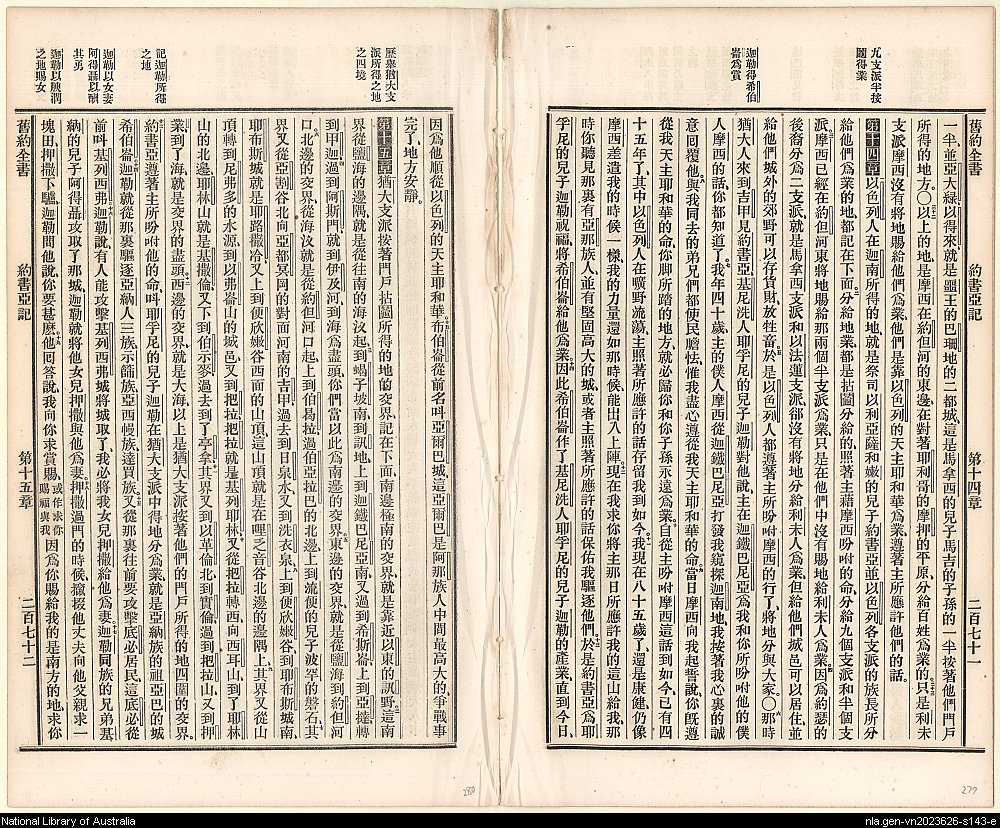 九支派半按
鬮得業
迦勒得希伯
崙爲賞
舊約全書 約書亞記 第十四章 二百七十一
一半、並亞大綠以得來、就是噩王的巴珊地的二都城、這是馬拿西的兒子馬吉的子孫的一半按著他們門戶
所得的地方。○以上的地是摩西在約但河的東邊、在對著耶利哥的摩押的平原、分給百姓爲業的只是利未
支派摩西沒有將地賜給他們爲業他們是靠以色列的天主耶和華爲業、遵著主所應許他們的話。
第十四章 以色列人在迦南所得的地、就是祭司以利亞薩和嫩的兒子約書亞、並以色列各支派的族長所分
給他們爲業的地、都記在下面、分給地業都是拈鬮分給的、照著主藉摩西吩咐的命、分給九個支派和半個支
派、摩西已經在約但河東將地賜給那兩個半支派爲業、只是在他們中沒有賜地給利未人爲業、因爲約瑟的
後裔分爲二支派、就是馬拿西支派和以法蓮支派、卻沒有將地分給利未人爲業、但給他們城邑可以居住、並
給他們城外的郊野可以存貨財、放牲畜、於是以色列人都遵著主所吩咐摩西的行了、將地分與大家。○那時
猶大人來到吉甲見約書亞、基尼洗人耶孚尼的兒子迦勒對他說、主在迦鐵巴尼亞爲我和你所吩咐他的僕
人摩西的話、你都知道了、我年四十歲、主的僕人摩西從迦鐵巴尼亞打發我窺探迦南地、我按著我心裏的誠
意回覆他、與我同去的弟兄們都使民膽怯、惟我盡心遵從我天主耶和華的命、當日摩西向我起誓說、你旣遵
從我天主耶和華的命、你脚所踏的地方就必歸你和你子孫永遠爲業、自從主吩咐摩西這話到如今、已有四
十五年了、其中以色列人在曠野流蕩、主照著所應許的話存留我到如今、我現在八十五歲了、還是康健、仍像
摩西差遣我的時候一樣、我的力量還如那時候、能出入上陣、現在我求你將主那日所應許我的這山給我、那
時你聽見那裏有亞那族人、並有堅固高大的城、或者主照著所應許的話保佑我、驅逐他們、於是約書亞爲耶
孚尼的兒子迦勒祝福、將希伯崙給他爲業、因此希伯崙作了基尼洗人耶孚尼的兒子迦勒的產業、直到今日、
279
歷舉猶大支
派所得之地
之四境
記迦勒所得
之地
迦勒以女妻
阿得聶以酬
其勇
迦勒以膴潤
之地賜女
因爲他順從以色列的天主耶和華、希伯崙從前名叫亞爾巴城、這亞爾巴是阿那族人中間最高大的、爭戰事
完了、地方安靜。
第十五章 猶大支派按著門戶拈鬮所得的地的交界記在下面、南邊極南的交界、就是靠近以東的訊野、這南
界從鹽海的海的邊隅、就是從往南的海汊起、到蝎子坡南、到訊地、上到迦鐵巴尼亞南、又過到希斯崙、上到亞達、轉
到甲迦、過到阿斯門、就到伊及河、到海爲盡頭、你們當以此爲南邊的交界、東邊的交界、就是從鹽海到約但河
口、北邊的交界、從海汊就是從約但河口起、上到伯曷拉、過伯亞拉巴的北邊、上到流便的兒子波罕的磐石、其
界又從亞割谷北向亞都冥岡的對面河南的吉甲、過去到日泉水、又到洗衣泉、上到便欣嫩谷、到耶布斯城南、
耶布斯城就是耶路撒冷、又上到便欣嫩谷西面的山頂、這山頂就是在哩乏音谷北邊的邊隅上、其界又從山
頂轉到尼弗多的水源、到以弗崙山的城邑、又到把拉、把拉就是基列耶林、又從把拉轉西向西耳山、到了耶林
山的北邊、耶林山就是基撒倫、又下到伯示麥、過去到了亭拿、其界又到以革倫北、到實倫、過到把拉山、又到押
業、到了海就是交界的盡頭、西邊的交界、就是大海、以上是猶大支派按著他們的門戶所得的地四圍的交界。
約書亞遵著主所吩咐他的命、叫耶孚尼的兒子迦勒在猶大支派中得地分爲業、就是亞納族的祖亞巴的城
希伯崙、迦勒就從那裏驅逐亞納人三族、示篩族、亞西幔族、達買族、又從那裏往前要攻擊底必居民、這底必從
前叫基列西弗、迦勒說、有人能攻擊基列西弗城將城取了、我必將我女兒押撒給他爲妻、迦勒同族的兄弟基
納的兒子阿得聶攻取了那城、迦勒就將他女兒押撒與他爲妻、押撒過門的時候、攛掇他丈夫向他父親求一
塊田、押撒下驢、迦勒問他說、你要甚麼、他回答說、我向你求賞賜、或作求你賜福與我 因爲你賜給我的是南方的地、求你
舊約全書 約書亞記 第十五章 二百七十二
280
National Library of Australia
nla.gen-vn2023626-s143-e